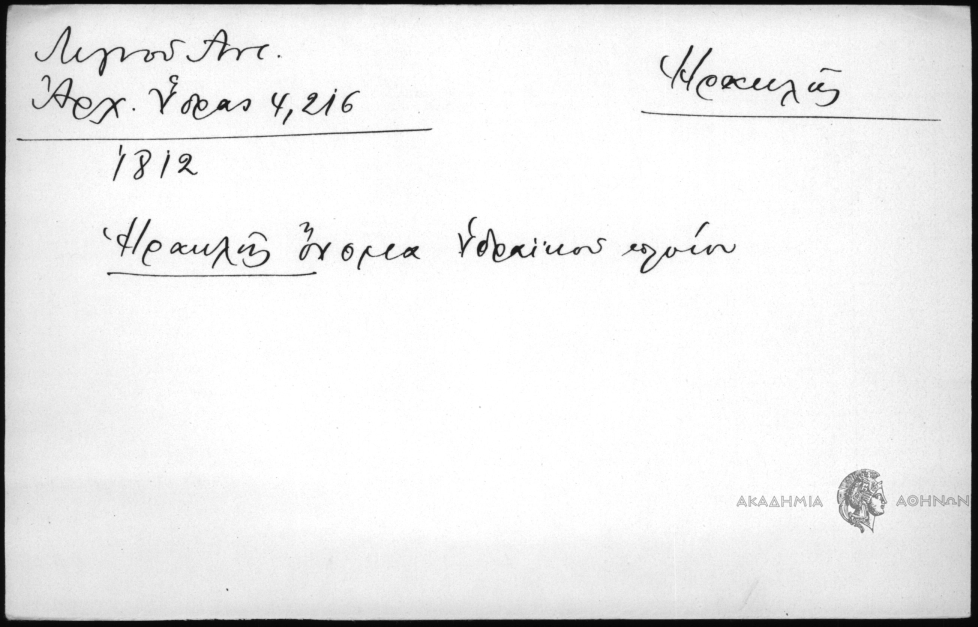 Λιγνού Αντ.
Ἀρχ. Ὕδρας 4,216
Ἡρακλῆς
1812
Ἡρακλῆς ὄνομα ὑδραϊκοῦ πλοίου
ΑΚΑΔΗΜΙΑ ΑΘΗΝΩΝ